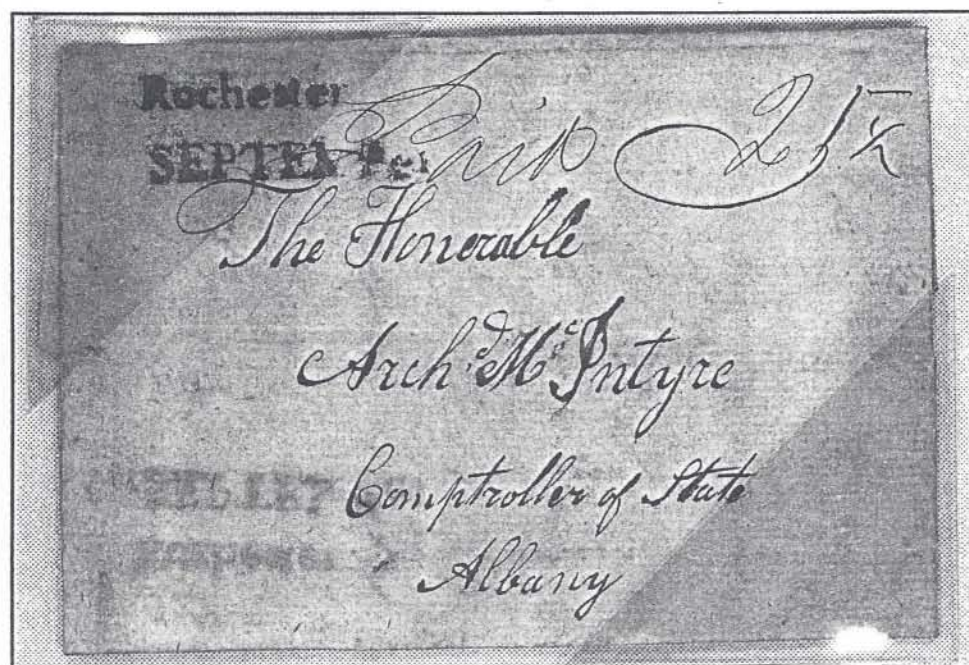 Rochester
Paid 25½
The Honerable
Archd. McIntyre
Comptroller of State
Albany